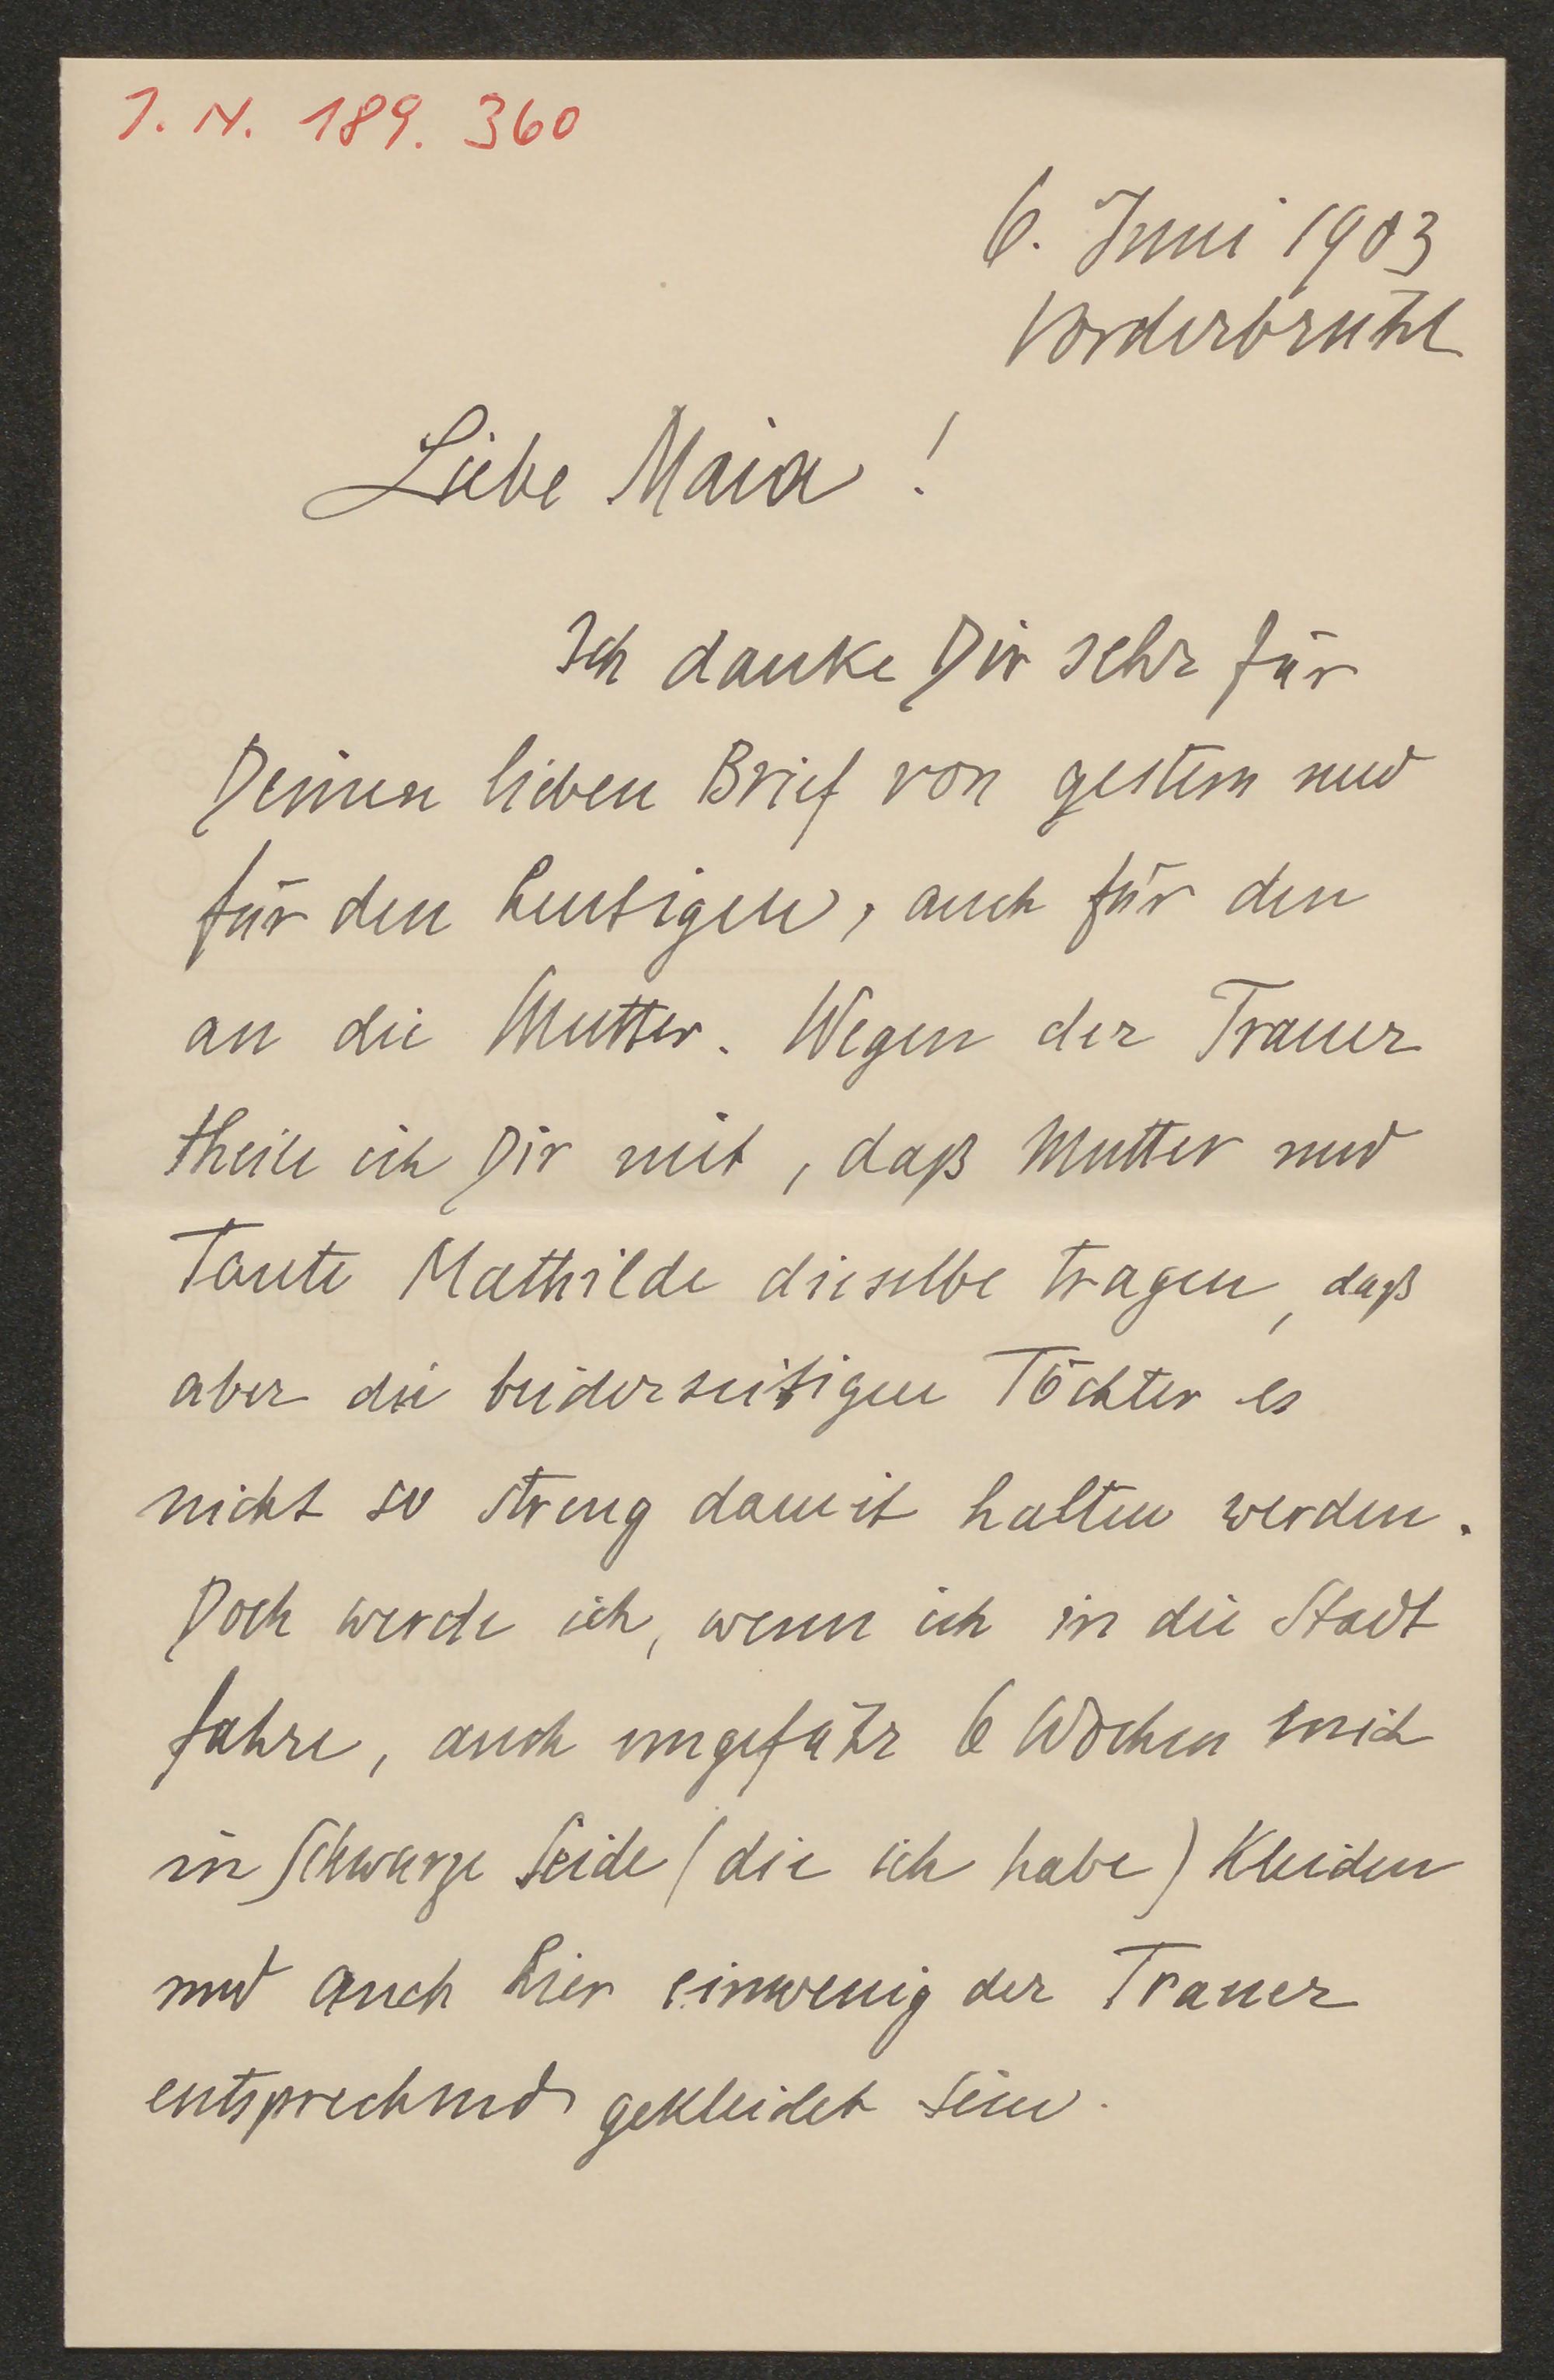 I. N. 189. 360
6. Juni 1903
Vorderbrühl
Liebe Maia!
Ich danke Dir sehr für
Deinen lieben Brief von gestern und
für den heutigen, auch für den
an die Mutter. Wegen der Trauer
theile ich Dir mit, daß Mutter und
Tante Mathilde dieselbe tragen, daß
aber die beiderseitigen Töchter es
nicht so streng damit halten werden.
Doch werde ich, wenn ich in die Stadt
fahre, auch ungefähr 6 Wochen mich
in schwarze Seide (die ich habe) kleiden
und auch hier einwenig der Trauer
entsprechend gekleidet sein.